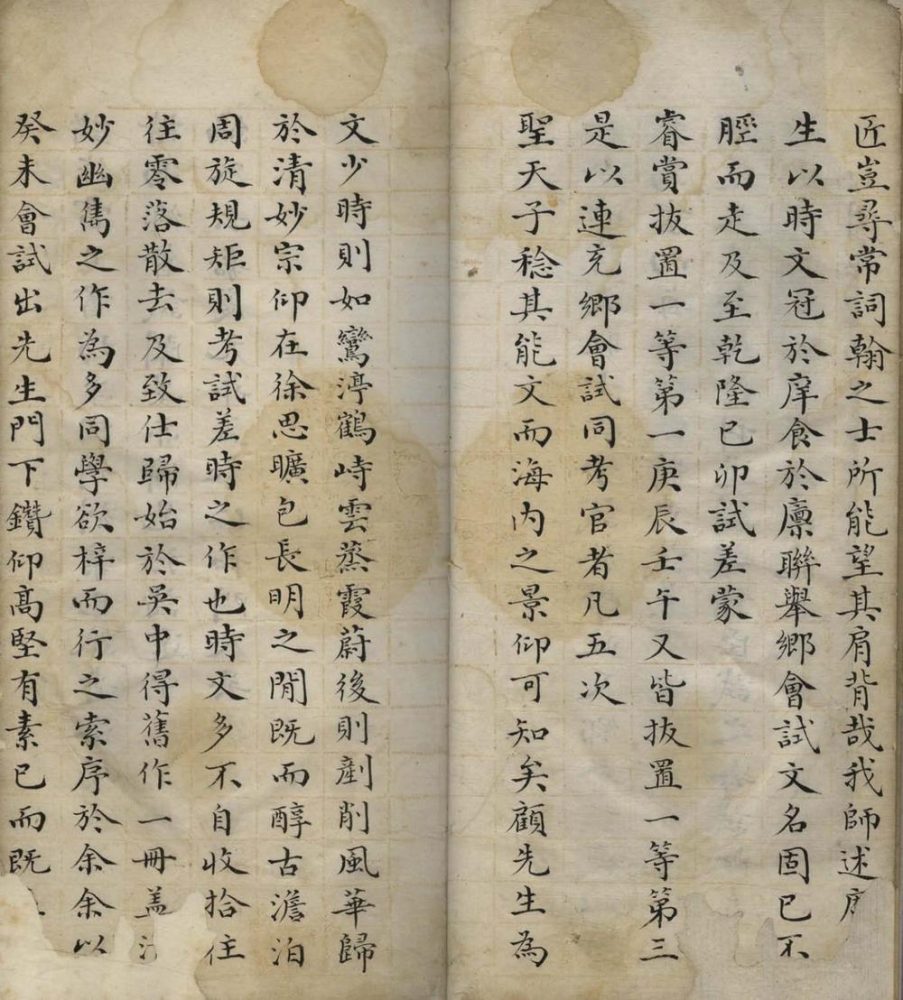 匠豈尋常詞翰之士所能望其肩背哉我師述
生以時文冠於庠食於廪聨舉鄉會試文名固已不
脛而走及至乾隆已卯試差蒙
睿賞拔置一等第一庚辰壬午又皆拔置一等第三
是以連充鄉會試同考官者凡五次
聖天子稔其能文而海内之景仰可知矣顧先生為
文少時則如鸞渟鶴峙雲蒸霞蔚後則剷削風華歸
於清妙宗仰在徐思曠包長明之間既而醇古澹泊
周旋規矩則考試差時之作也時文多不自收拾往
往零落散去及致仕歸始於吳中得舊作一冊盖
妙幽雋之作為多同學欲梓而行之索序於余余以
癸未會試出先生門下鑽仰高堅有素已而既